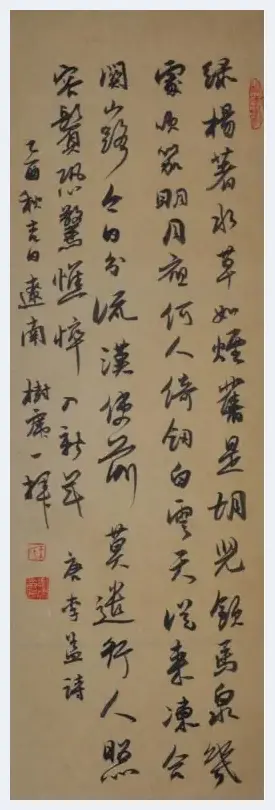 綠楊著水草如煙舊是胡兒飲馬泉幾
處吹笳明月夜何人倚釼白雲天從来凍合
關山路今日分流漢使前莫遣行人照
容鬢恐驚憔悴入新年 唐李益詩
乙酉秋吉日遼南 樹一揮